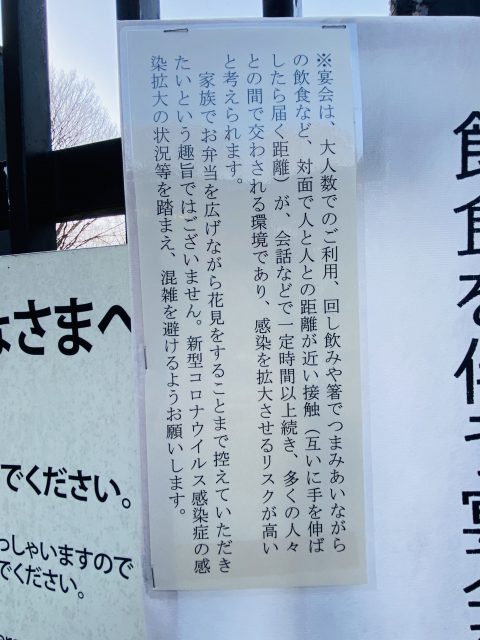 飲食を伴う宴会
※宴会は、大人数でのご利用、回し飲みや箸でつまみあいながら
の飲食など、対面で人と人との距離が近い接触（互いに手を伸ば
したら届く距離）が、会話などで一定時間以上続き、多くの人々
との間で交わされる環境であり、感染を拡大させるリスクが高い
と考えられます。
家族でお弁当を広げながら花見をすることまで控えていただき
たいという趣旨ではございません。新型コロナウイルス感染症の感
染拡大の状況等を踏まえ、混雑を避けるようお願いします。
なさまへ
でください。
っしゃいますので
でください。